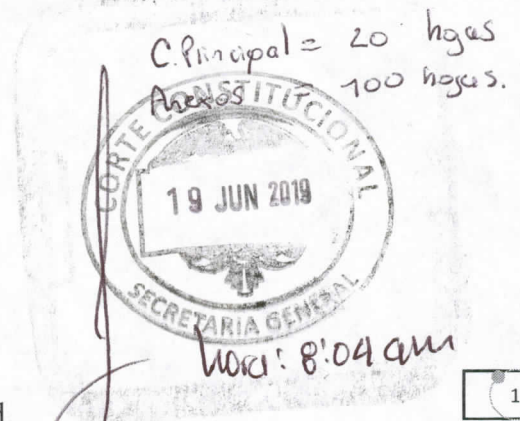 C. Principal = 20 hojas
Anexos = 100 hojas.
CORTE CONSTITUCIONAL
19 JUN 2019
SECRETARIA GENERAL
Hora: 8:04 am
1